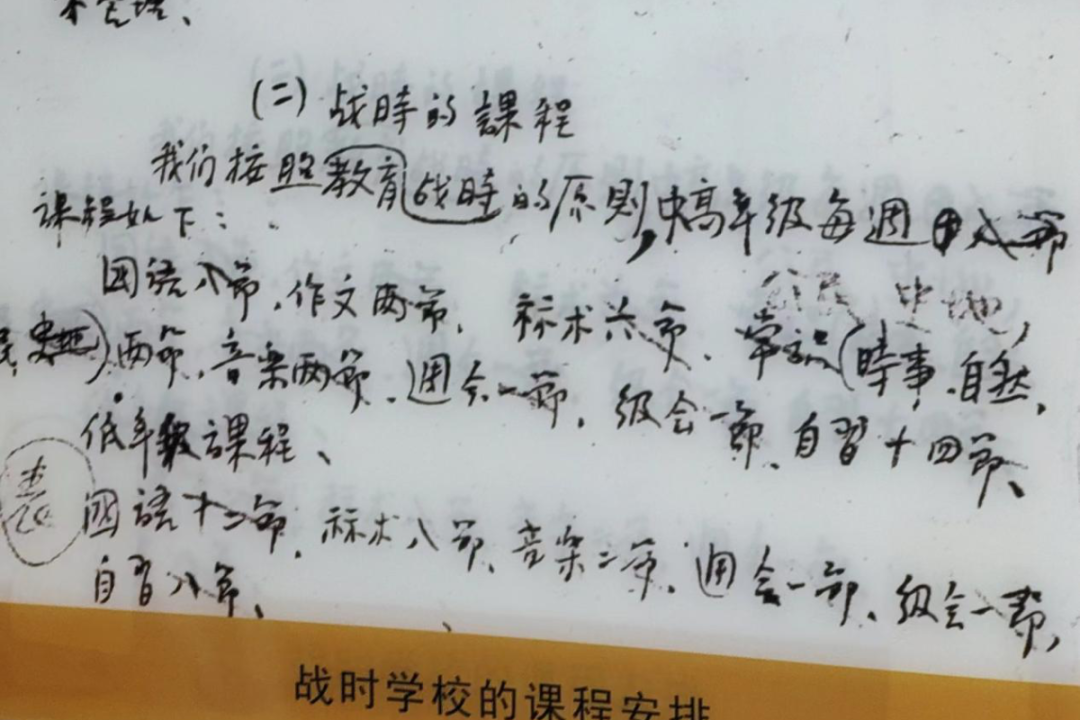 (二)战时的課程
我们按照教育战时的原则,中高年级每週 八節
课程如下:
国语八節、作文两節、
祘术六節、常识(時事、自然,
史地)两節、音楽两節、週会一節、级会一節、自習十四節、
低年级課程、
国語十二節、祘术八節、音楽二節、週会一節、级会一節,
自習八節、
战时学校的课程安排